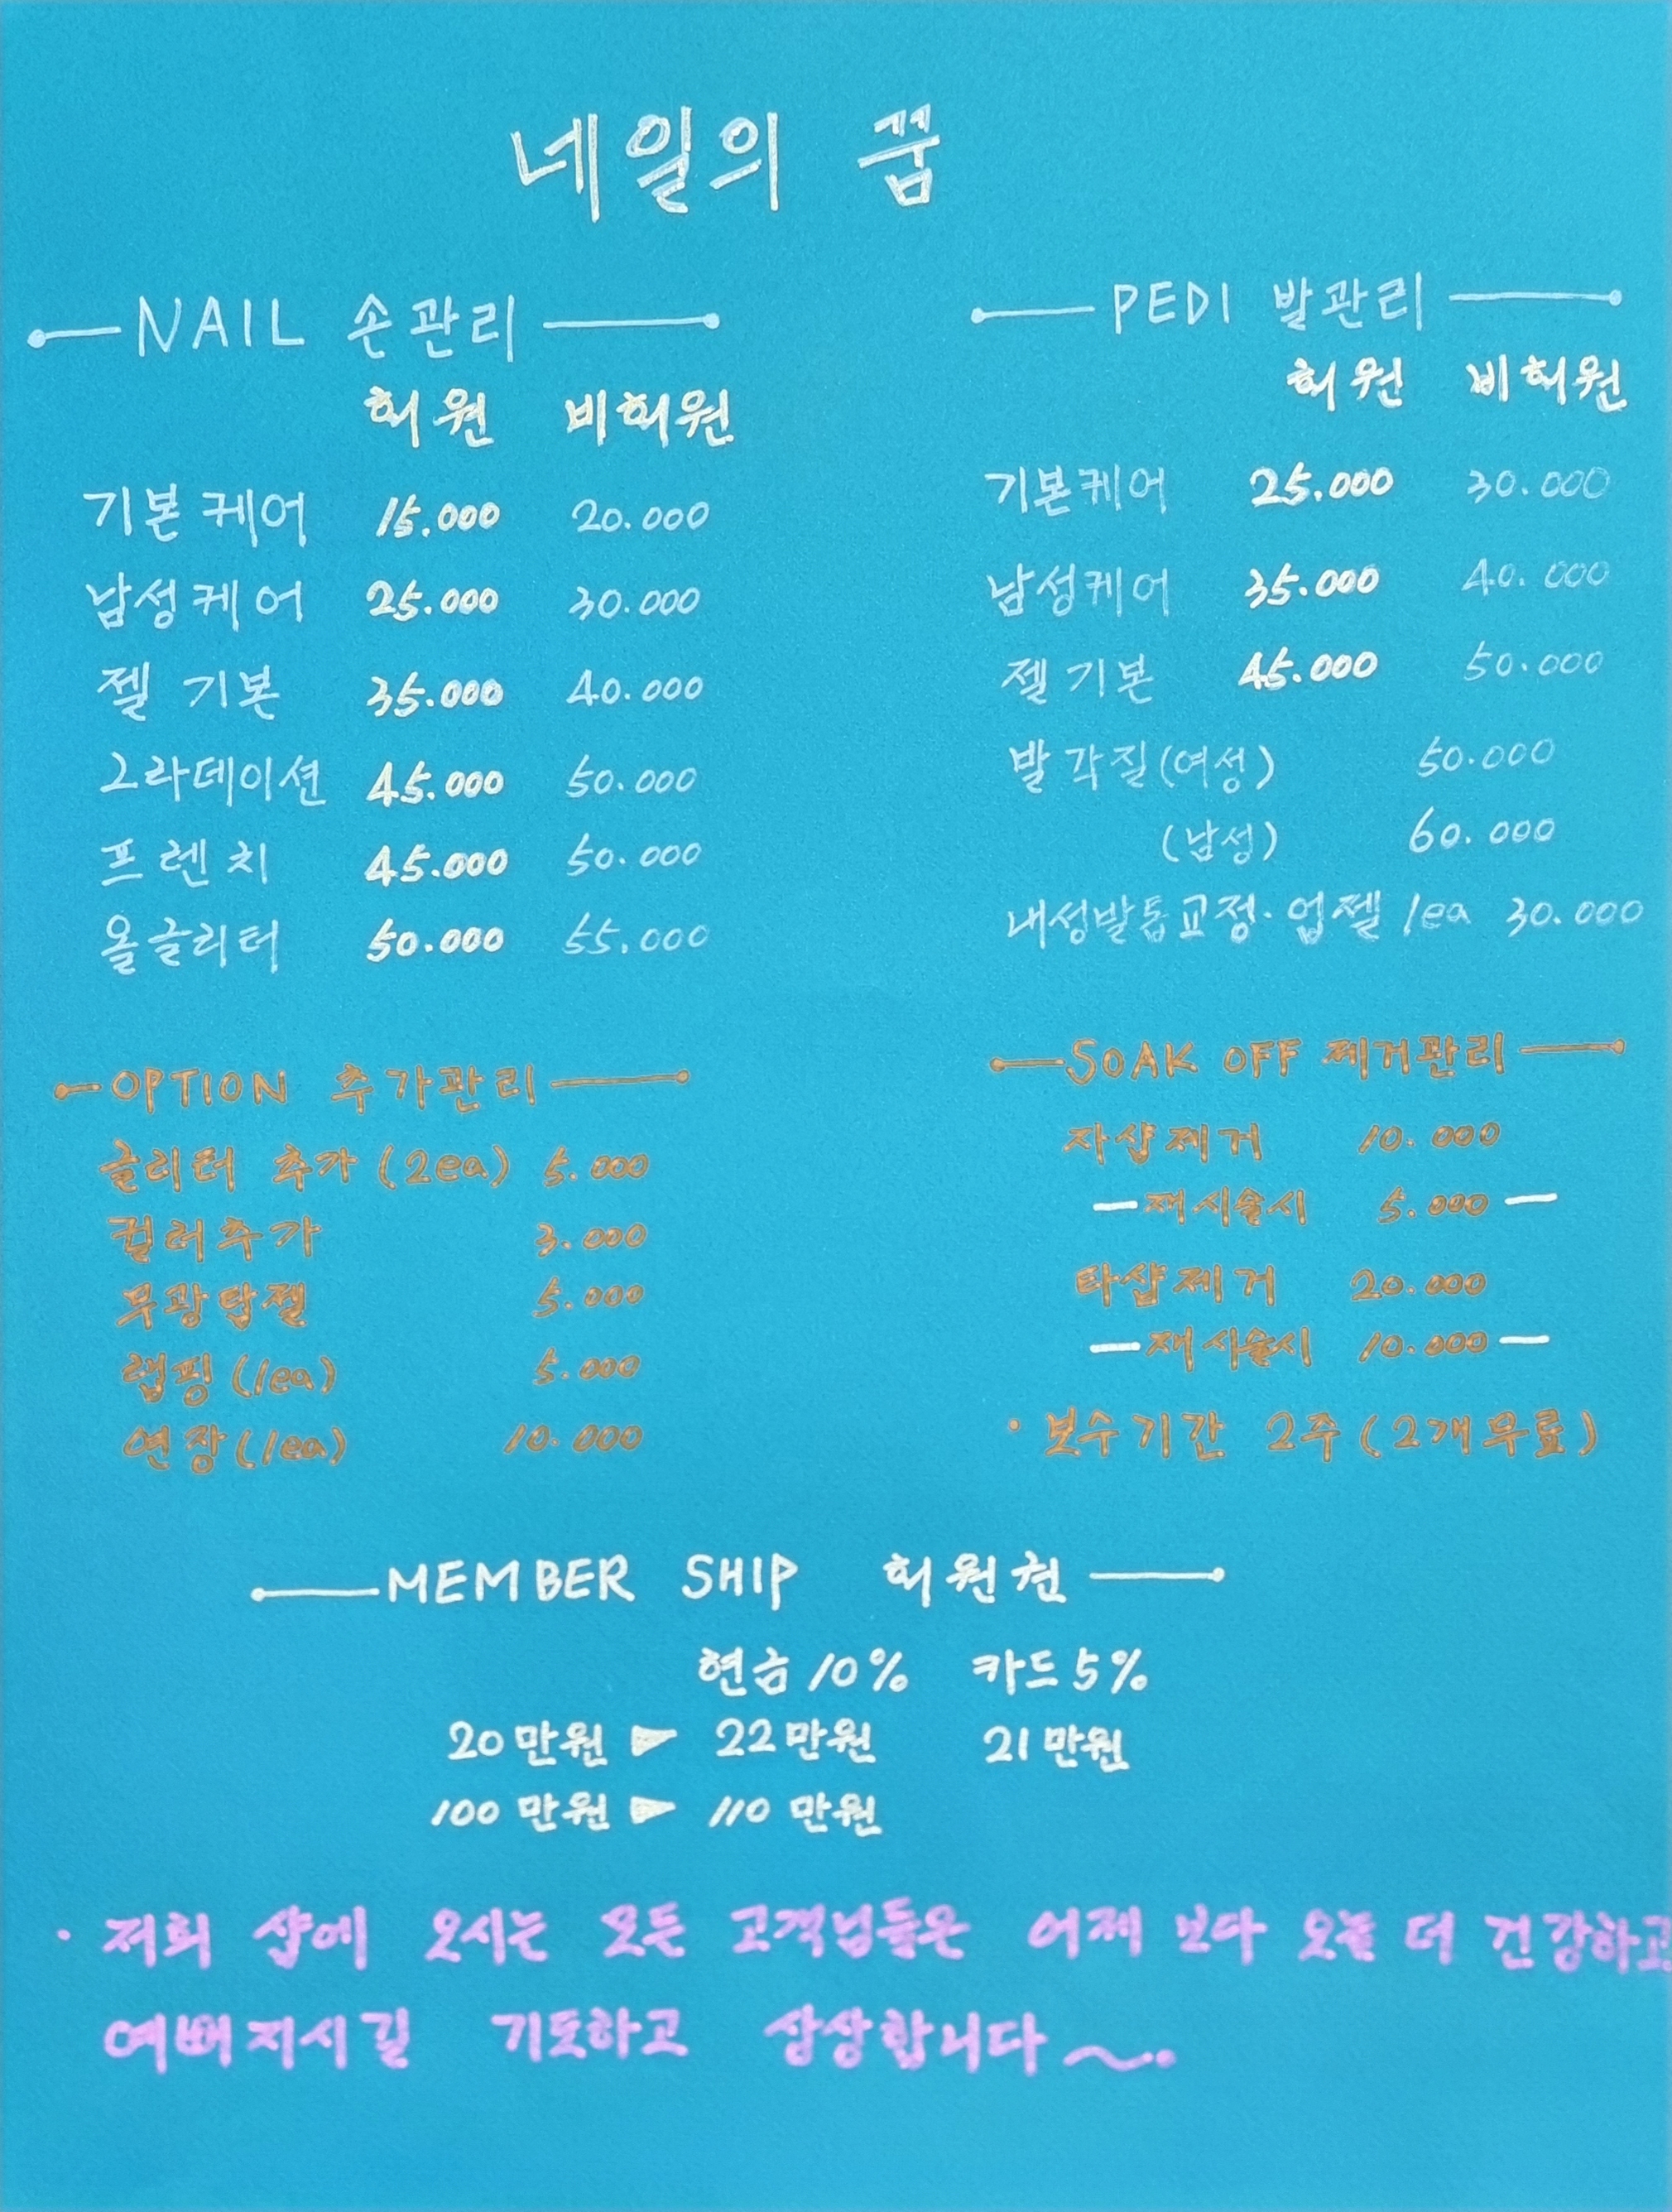 네일의 꿈
NAIL 손관리
회원 비회원
기본케어 15.000 20.000
남성케어 25.000 30.000
젤 기본 35.000 40.000
그라데이션 45.000 50.000
프렌치 45.000 50.000
올글리터 50.000 55.000
PEDI 발관리
회원 비회원
기본케어 25.000 30.000
남성케어 35.000 40.000
젤기본 45.000 50.000
발각질(여성) 50.000
(남성) 60.000
내성발톱교정·업젤 1ea 30.000
OPTION 추가관리
글리터 추가(2ea) 5.000
컬러추가 3.000
무광탑젤 5.000
랩핑(1ea) 5.000
연장(1ea) 10.000
SOAK OFF 제거관리
자샵제거 10.000
-재시술시 5.000-
타샵제거 20.000
-재시술시 10.000-
·보수기간 2주(2개무료)
MEMBER SHIP 회원권
현금10% 카드5%
20만원 ▶ 22만원 21만원
100만원 ▶ 110만원
· 저희 샵에 오시는 모든 고객님들은 어제 보다 오늘 더 건강하고
예뻐지시길 기도하고 상상합니다~.